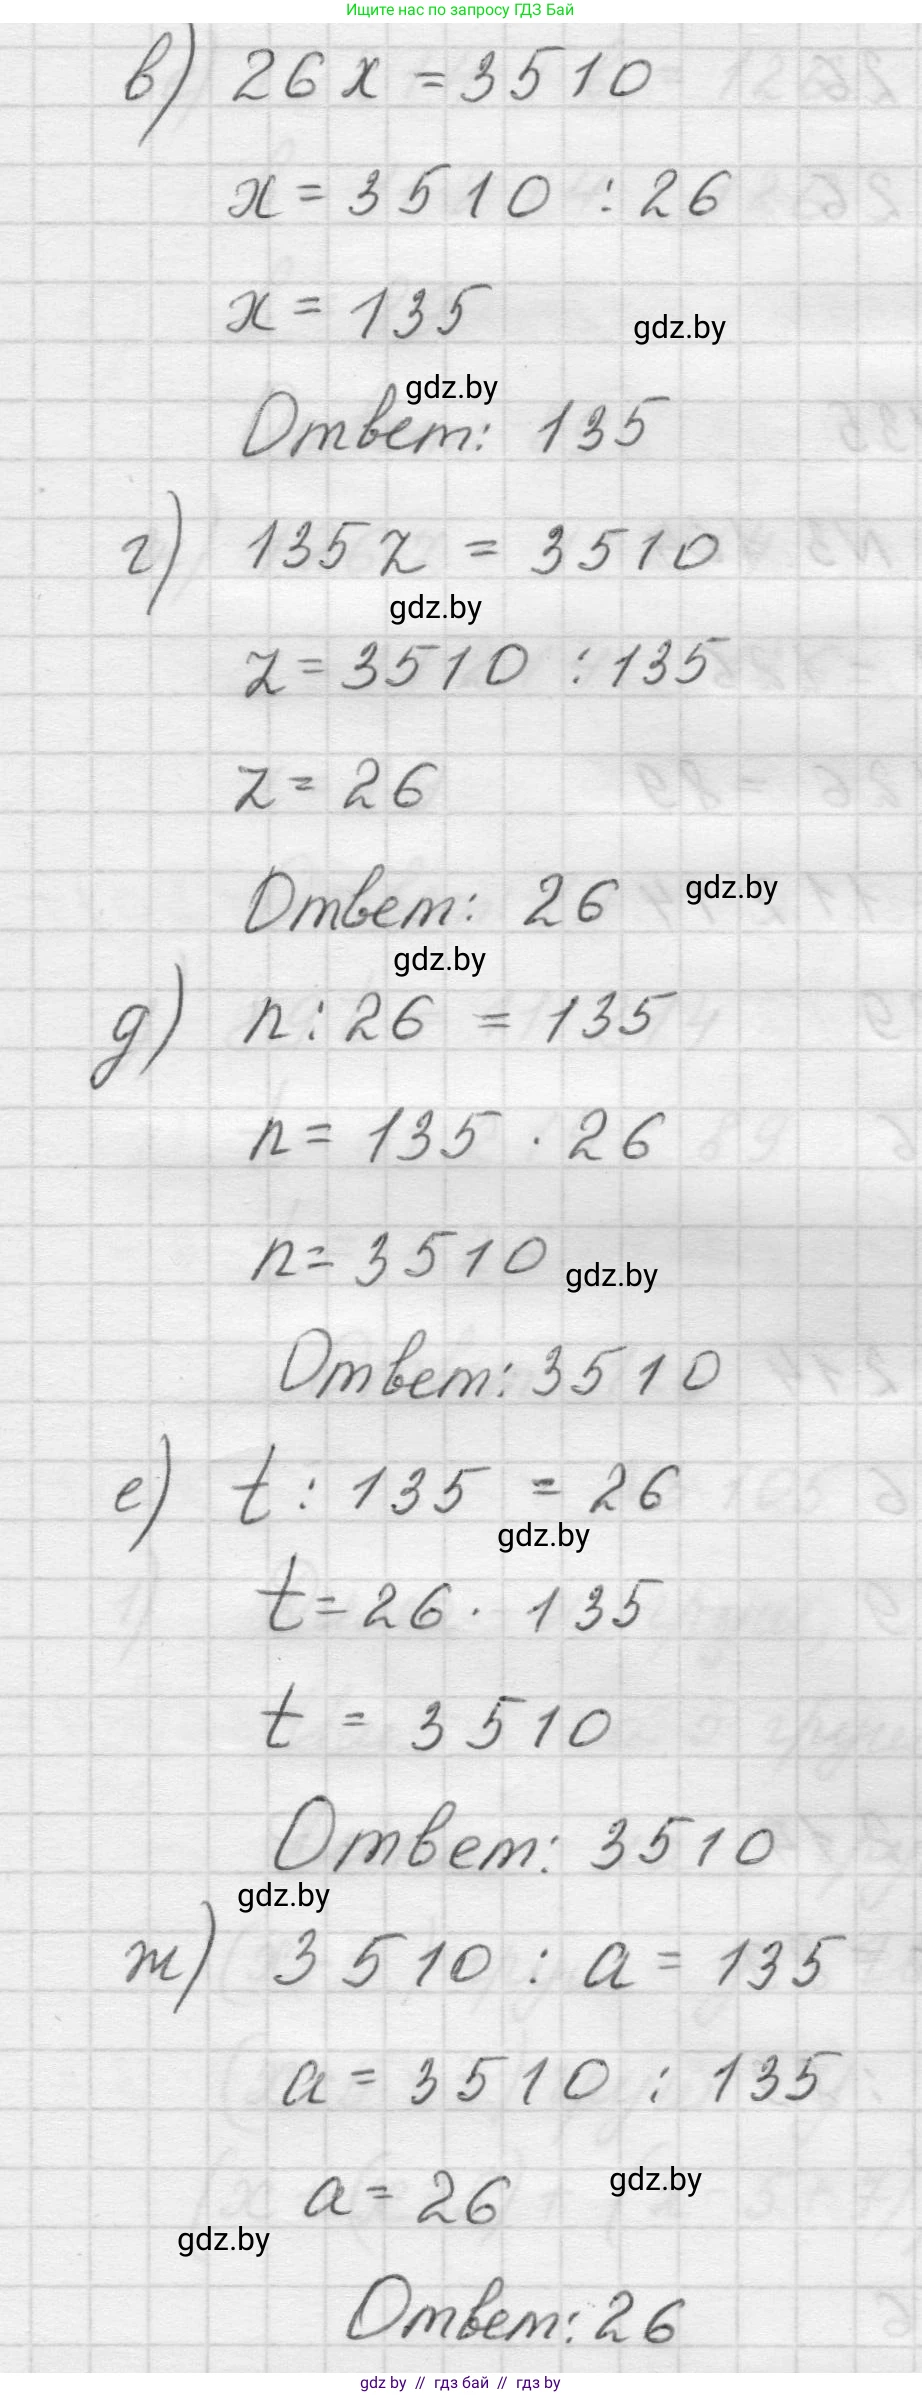 Ищите нас по запросу ГДЗ Бай
в) 26x = 3510
x = 3510 : 26
x = 135
gdz.by
gdz.by
Ответ: 135
г) 135z = 3510
gdz.by
z = 3510 : 135
z = 26
Ответ: 26
gdz.by
gdz.by
д) n : 26 = 135
n = 135 · 26
n = 3510
gdz.by
Ответ: 3510
е) t : 135 = 26
gdz.by
t = 26 · 135
t = 3510
Ответ: 3510
gdz.by
ж) 3510 : a = 135
a = 3510 : 135
a = 26
gdz.by
gdz.by
Ответ: 26
gdz by // гдз бай // gdz by